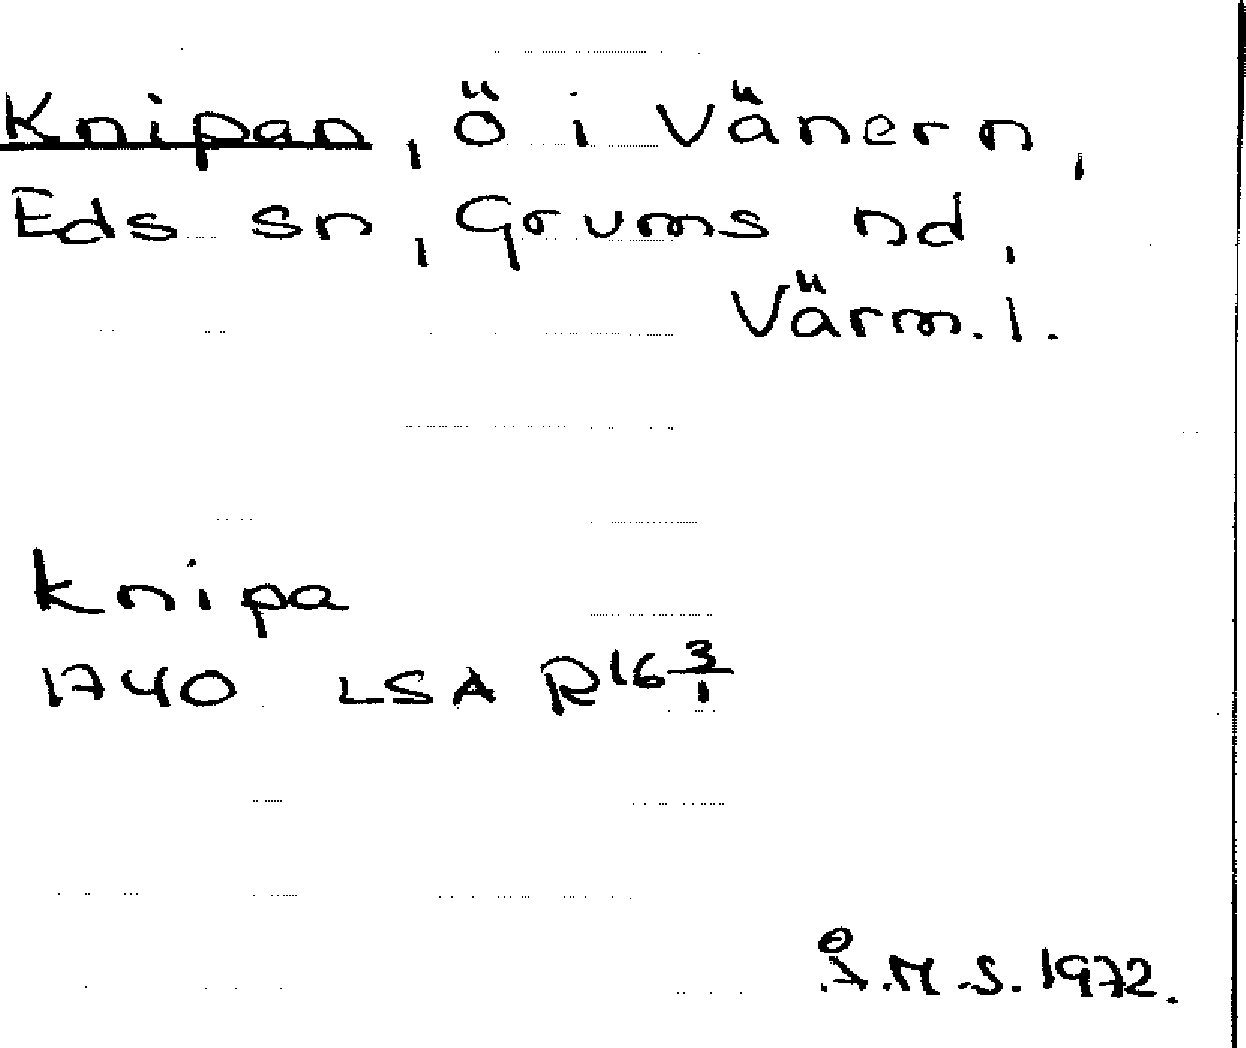 Knipan, ö i Vänern,
Eds sn, Grums nd,
Värm. l.
knipa
1740 LSA R16 3/1
Å.M.S. 1972.